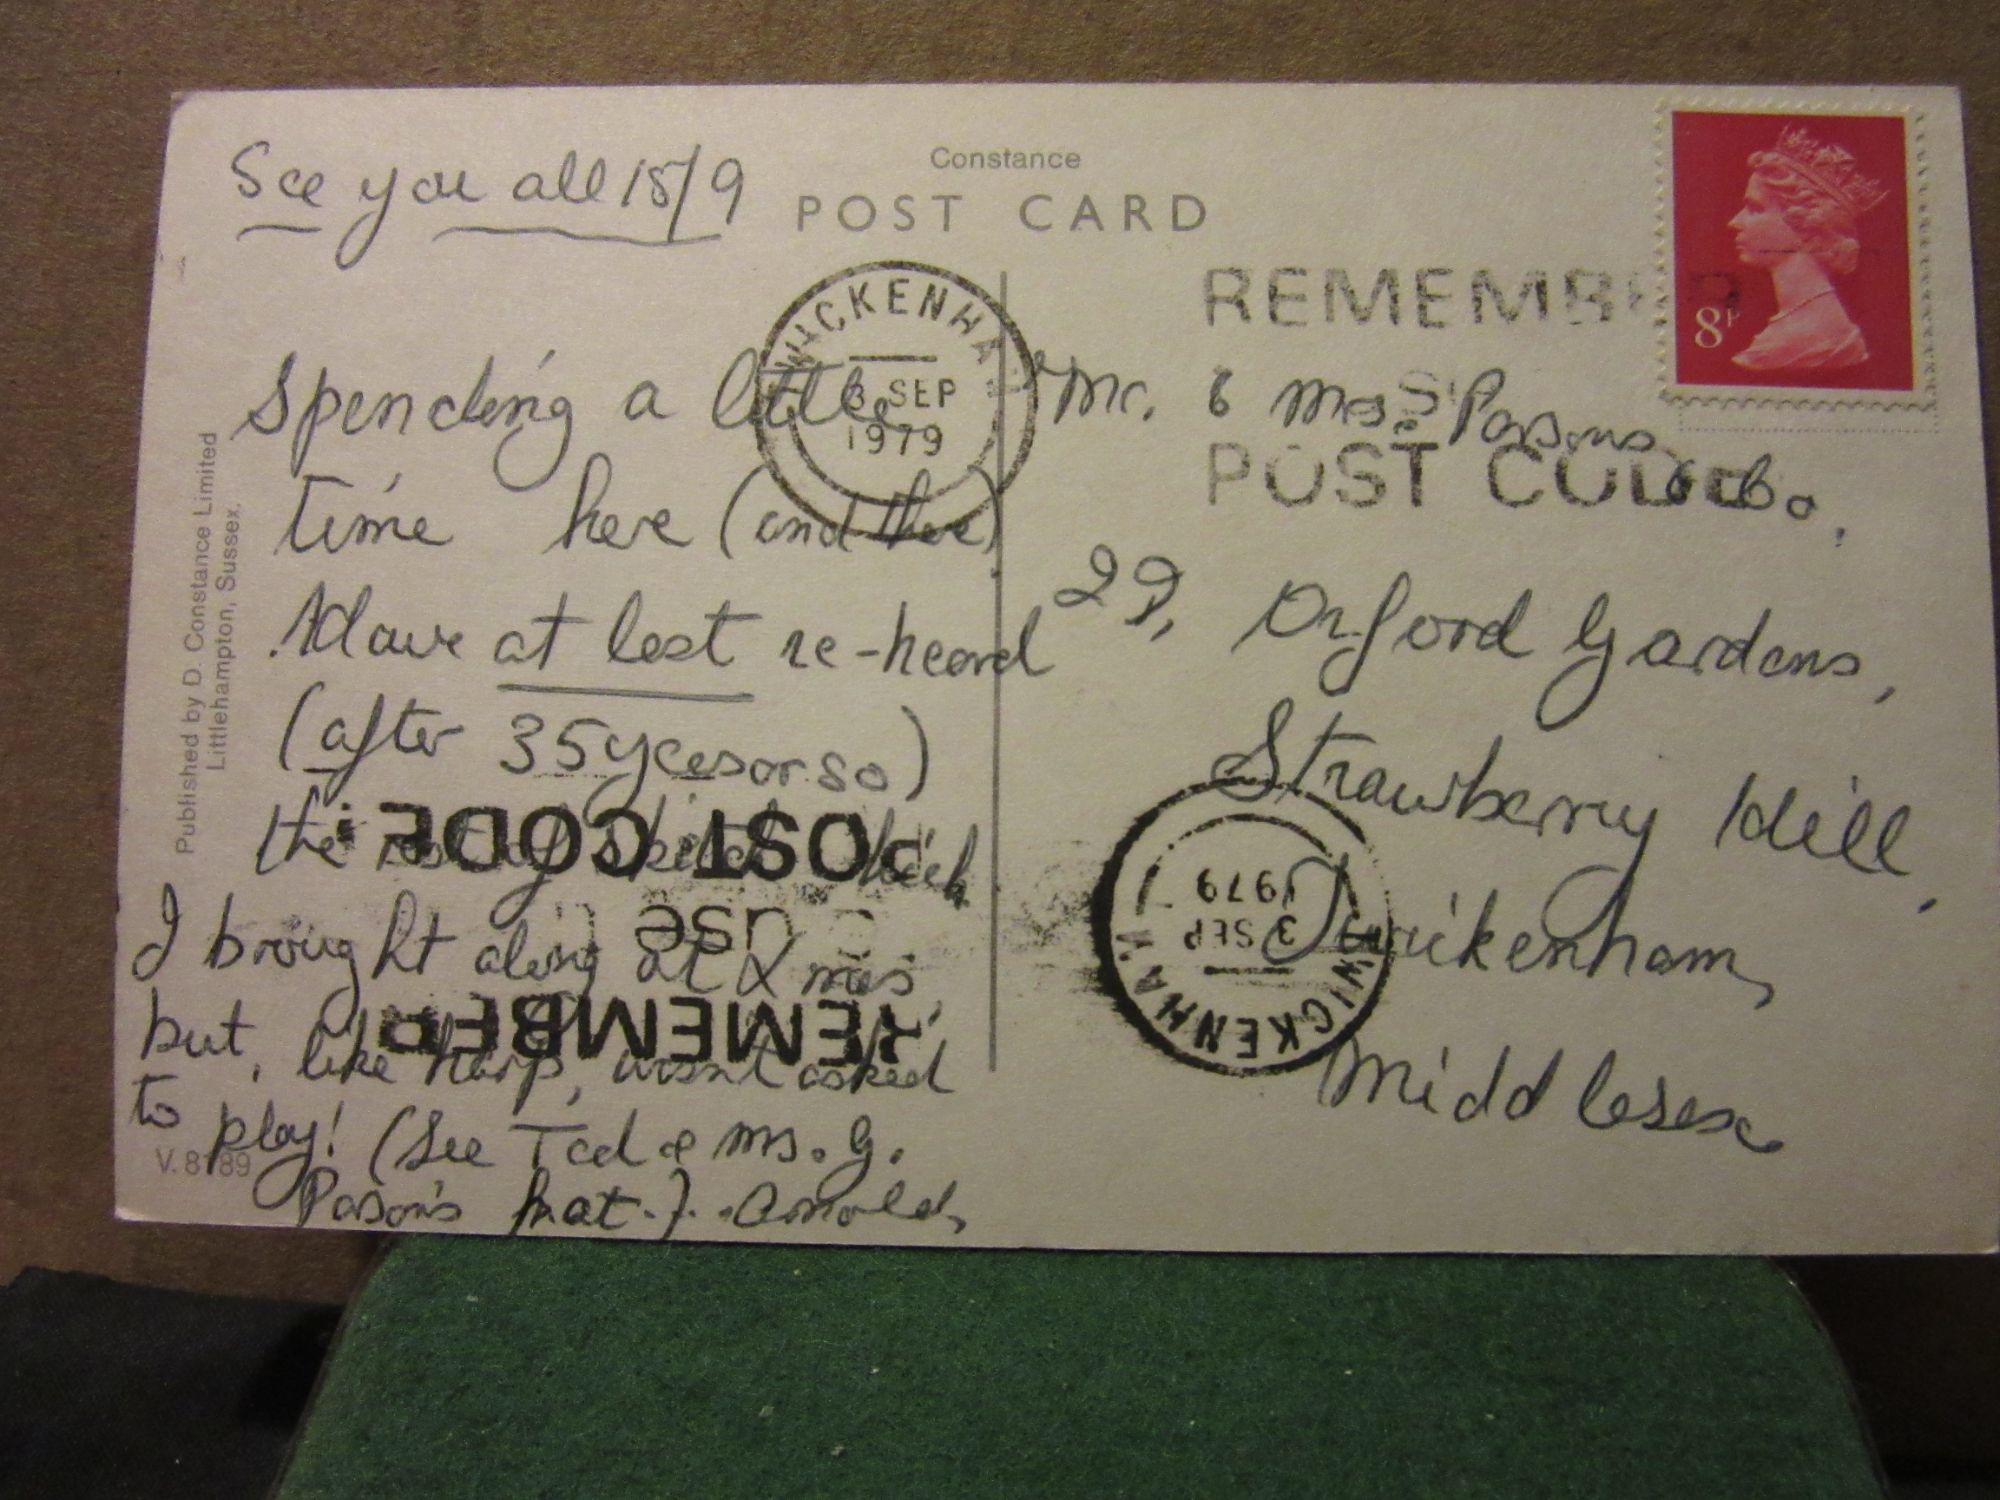 See you all 15/9
Constance
POST CARD
TWICKENHAM
3 SEP
1979
REMEMBER
POST CODE
8P
Spending a little
time here (and there)
Have at last re-heard
(after 35 yces or so)
the
I brought along at Xmas,
but, like harp, wasn't asked
to play! (See Ted & Ms. G.
Parsons . Arnold,
Mr. & Mrs. Parsons
29, Orford Gardens,
Strawberry Hill,
Twickenham,
Middlesex
TWICKENHAM
3 SEP
1979
REMEMBER
USE
POST CODE
Published by D. Constance Limited
Littlehampton, Sussex.
V. 8189